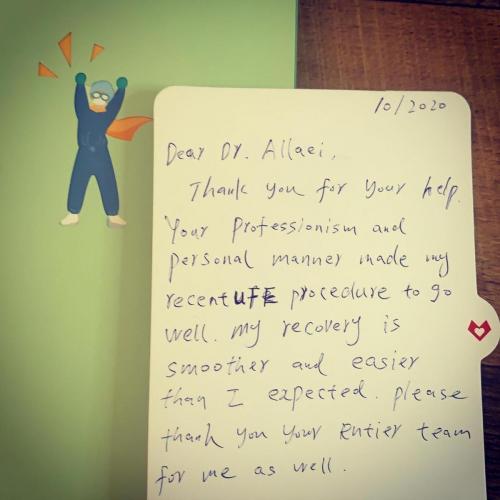 10/2020
Dear Dr. Allaei,
Thank you for your help.
Your Professionism and
personal manner made my
recent UFE procedure to go
well. my recovery is
smoother and easier
than I expected. please
thank you your entier team
for me as well.